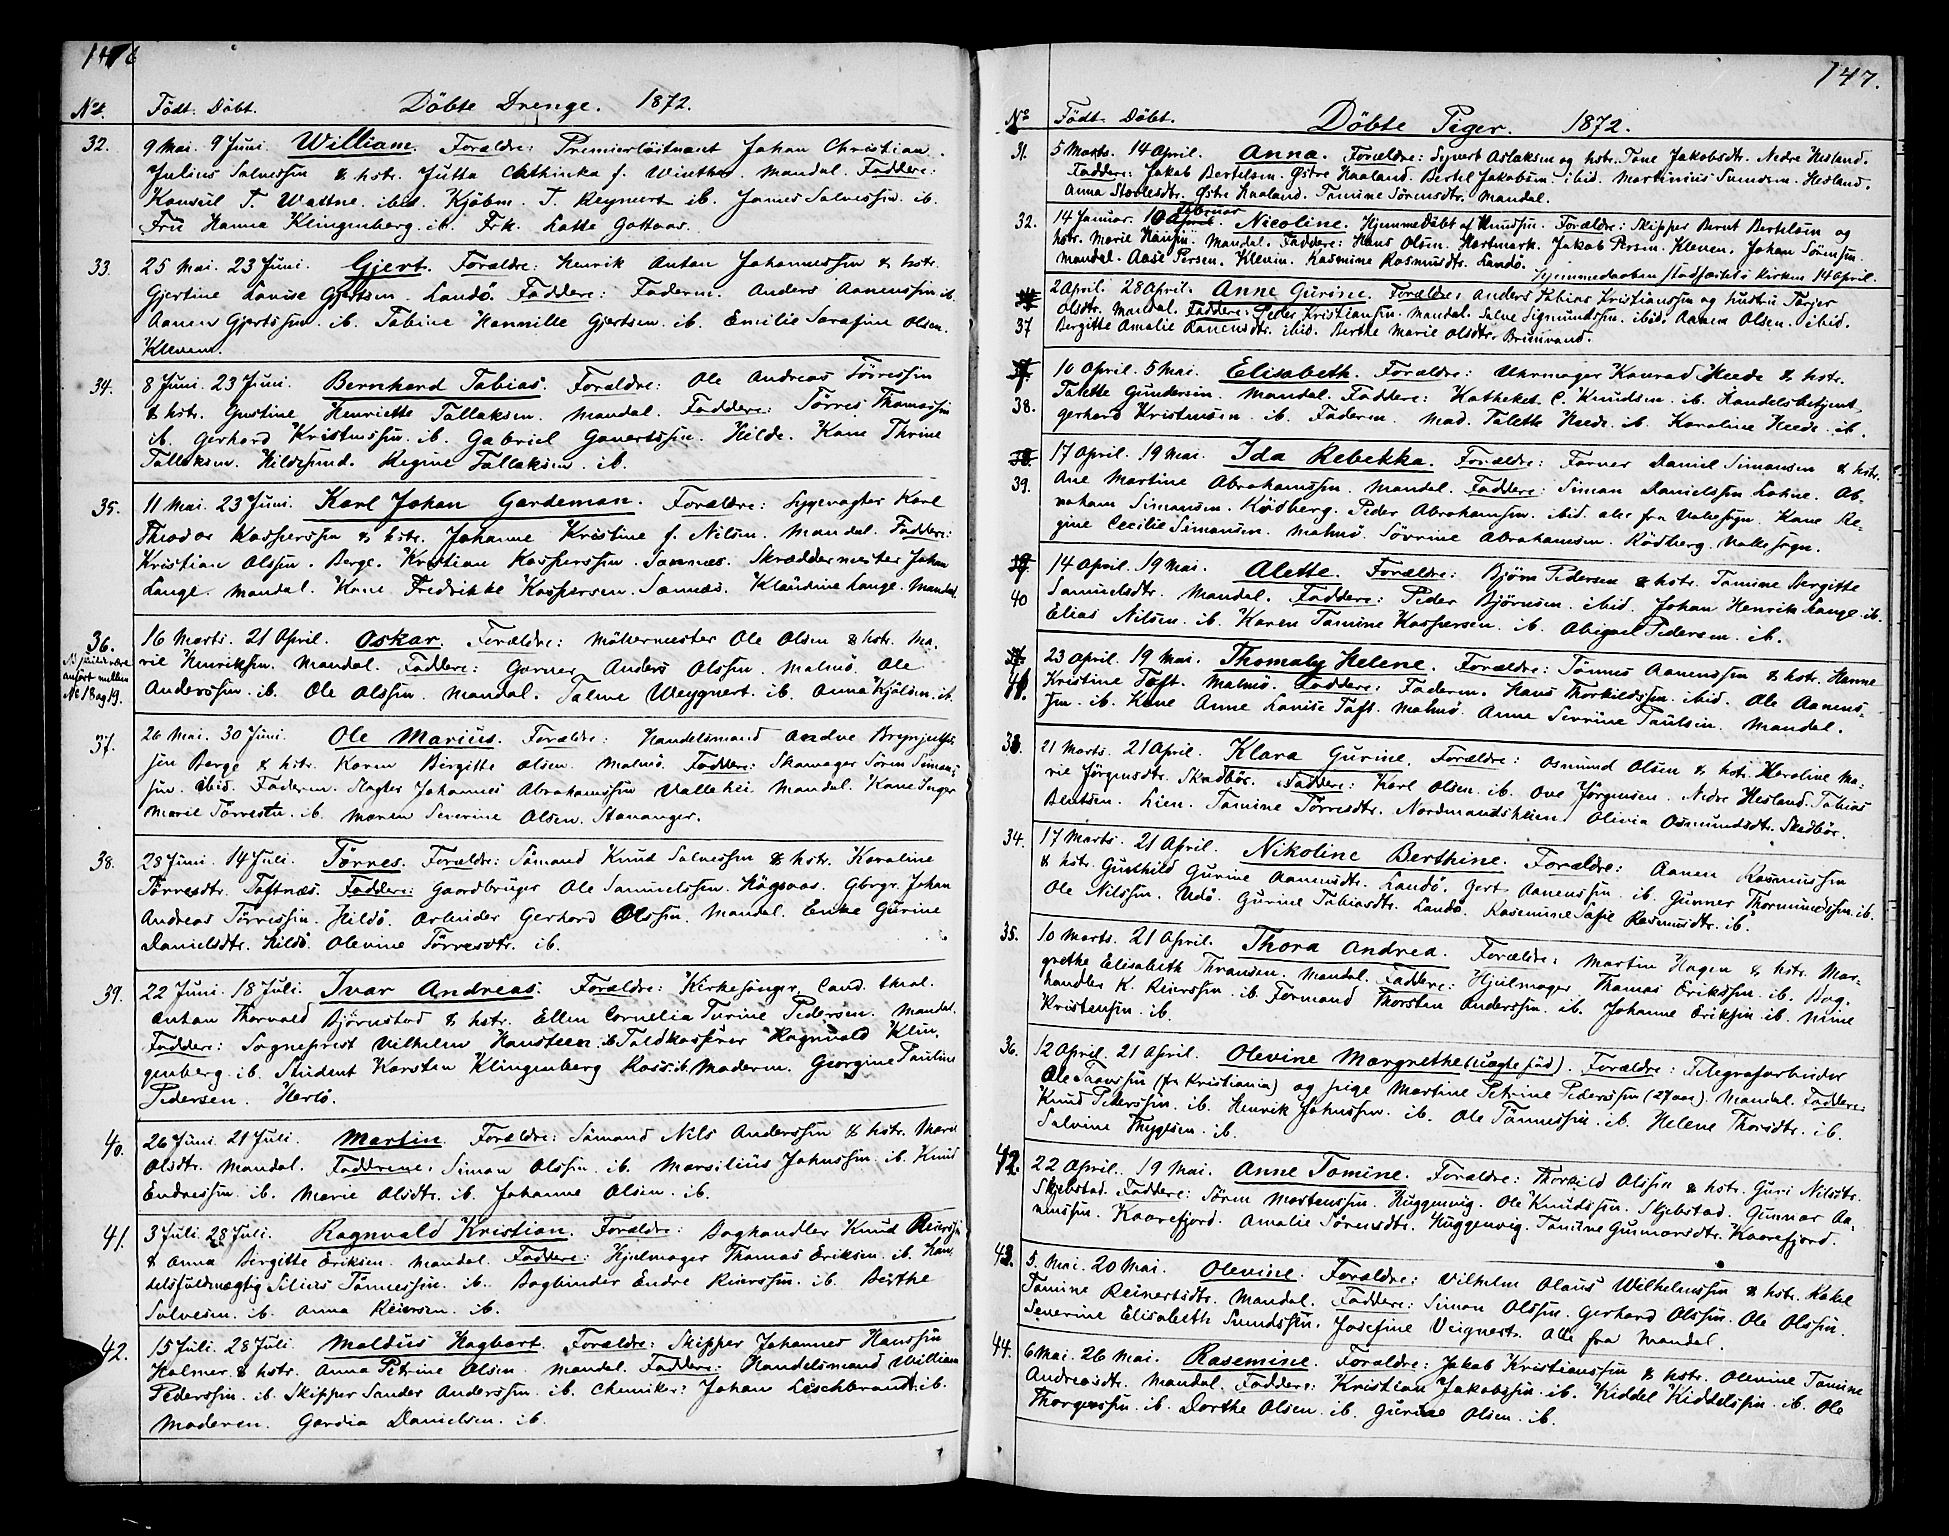 146
No. Födt. Döbt. Döbte Drenge. 1872.
32. 9 Mai. 9 Juni. William. Forældre: Premierlöitnant Johan Christian
Julius Salvessen & hstr. Jutta Cathinka f. Winther. Mandal. Faddere:
Konsul T. Wattne. ibid. Kjöbm. T. Reynert ib. James Salvessen. ib.
Fru Hanna Klingenberg. ib. Frk. Lotte
33. 25 Mai. 23 Juni. Gjert. Forældre: Henrik Anton Johannessen & hstr.
Gjertine Lovise Gjertsen. Landö. Faddere: Faderen. Anders Aanenssen ib.
Aanen Gjertssen. ib. Tobine Hannille Gjertsen. ib. Emilie Serafine Olsen.
Kleven.
34. 8 Juni. 23 Juni. Bernhard Tobias. Forældre: Ole Andreas Törressen
& hstr. Gustine Henriette Tallaksen. Mandal. Faddere: Törres Thomassen
ib. Gerhard Kristenssen. ib. Gabriel Govertssen. Hilde. Kone Thrine
Tallaksen. Hildesund. Regine Tallaksen. ib.
35. 11 Mai. 23 Juni. Karl Johan Gardeman. Forældre: Sygevogter Karl
Theodor Kasperssen & hstr. Johanne Kristine f. Nilsen. Mandal. Faddere:
Kristian Olssen. Berge. Kristian Kasperssen. Sannæs. Skræddermester Johan
Lange. Mandal. Kone Fredrikke Kaspersen. Sannæs. Klaudine Lange. Mandal.
36. 16 Marts. 21 April. Oskar. Forældre: Møllermester Ole Olsen & hstr. Ma-
No 18 og 19. rie Henriksen. Mandal. Faddere: Garver Anders Olssen. Malmö. Ole
Anderssen. ib. Ole Olssen. Mandal. Taline Weygnert. ib. Anna Kjölsen. ib.
37. 26 Mai. 30 Juni. Ole Marius. Forældre: Handelsmand Andre Brynjulfs-
sen Berge & hstr. Karen Birgitte Olsen. Malmö. Faddere: Skomager Sören Simons-
sen. ibid. Faderen. Slagter Johannes Abrahamssen Vallehei. Mandal. Kone Inger
Marie Törresen. ib. Maren Severine Olsen. Stavanger.
38. 28 Juni. 14 Juli. Törres. Forældre: Sömand Knud Salvessen & hstr. Karoline
Törresdtr. Toftnæs. Faddere: Gaardbruger Ole Samuelssen. Högsaas. Gbrgr. Johan
Andreas Törressen. Hildö. Arbeider Gerhard Olssen. Mandal. Enke Gurine
Danielsdtr. Hildö. Olevine Törresdtr. ib.
39. 22 Juni. 18 Juli. Ivar Andreas. Forældre: Kirkesanger, Cand. theol.
Anton Thorvald Björnstad & hstr. Ellen Cornelia Turine Pedersen. Mandal.
Faddere: Sogneprest Vilhelm Hansteen. ib Toldkasserer Ragnvald Klin-
genberg. ib. Student Karsten Klingenberg Ross. ib. Moderen. Georgine Pauline
Pedersen. Herlö.
40. 26 Juni. 21 Juli. Martin. Forældre: Sömand Nils Anderssen & hstr. Maren
Olsdtr. Mandal. Fadderne: Simon Olssen. ib. Marsilius Johnssen. ib. Knud
Endressen. ib. Marie Olsdtr. ib. Johanne Olsen. ib.
41. 3 Juli. 28 Juli. Ragnvald Kristian. Forældre: Boghandler Knud Reierssen
& Anna Birgitte Eriksen. Mandal. Faddere: Hjulmager Thomas Eriksen. ib. Han-
delsfuldmægtig Tönnessen. ib. Bogbinder Endre Reierssen. ib. Berthe
Salvesen. ib. Anna Reiersen. ib.
42. 15 Juli. 28 Juli. Moldius Hagbart. Forældre: Skipper Johannes Hanssen
Holmer & hstr. Anna Petrine Olsen Mandal. Faddere: Handelsmand William
Pederssen. ib. Skipper Sander Anderssen. ib. Chemiker: Johan Leschbrandt ib.
Moderen. Gordia Danielsen. ib.
147.
No. Födt. Döbt. Döbte Piger. 1872.
31. 5 Marts. 14 April. Anna. Forældre: Syvert Aslaksen og hstr. Tone Jakobsdtr. Nedre Hesland.
Faddere: Jakob Bertelsen. Østre Haaland. Bertel Jakobsen. ibid. Martinius Hesland.
Anna Østre Haaland. Tomine Sörensdtr. Mandal.
32. 14 Januar. 10 Februar Nicoline. Hjemmedöbt af Knudsen. Forældre: Skipper Bernt Bertelsen og
hstr. Marie Hansen. Mandal. Faddere: Hans Olsen. Hartmark. Jakob Persen. Kleven. Johan Sörensen.
Mandal. Aase Persen. Kleven. Rasmine Rasmusdtr. Landö.
Hjemmedaaben stadfæstet i Kirken 14 April.
2 April. 28 April. Anne Gurine. Forældre: Anders Tobias Kristianssen og hustru Torjer
Olsdtr. Mandal. Faddere: Peder Kristiansen. Mandal. Salve Sigmundssen. ibid. Aanen Olsen. ibid.
37 Bergitte Amalie Aanensdtr. ibid. Berthe Marie Olsdtr. Brinsvand.
10 April. 5 Mai. Elisabeth. Forældre: Uhrmager Konrad Heede & hstr.
38. Talette Gundersen. Mandal. Faddere: Katheket C. Knudsen. ib. Handelsbetjent
Gerhard Kristensen. ib. Faderen. Mad. Talette Heede. ib. Karoline Heede. ib.
17 April. 19 Mai. Ida Rebekka. Forældre: Farver Daniel Simonsen & hstr.
39. Ane Martine Abrahamssen. Mandal. Faddere: Simon Danielssen Lohne. Ab-
raham Simonsen. Rödberg. Peder Abrahamsen. ibid alle fra Vallesogn. Kone Re-
gine Cecilie Simonsen. Malmö. Sövrine Abrahamsen. Rödberg. Vallesogn.
14 April. 19 Mai. Alette. Forældre: Björn Pedersen & hstr. Tomine Bergitte
40 Samuelsdtr. Mandal. Faddere: Peder Björnsen. ibid. Johan Henrik Lange. ib.
Elias Nilsen. ib. Karen Tomine Kaspersen. ib. Abigael Pedersen. ib.
23 April. 19 Mai. Thomaly Helene. Forældre: Tönnes Aanenssen & hstr. Hanne
41. Kristine Toft. Malmö. Faddere: Faderen. Hans Thorkildssen. ibid. Ole Aanens-
sen. ib. Kone Anne Lovise Toft. Malmö. Anne Serine Paulsen. Mandal.
33. 21 Marts. 21 April. Klara Gurine. Forældre: Osmund Olsen & hstr. Karoline Ma-
rie Jörgensdtr. Skadbör. Faddere: Karl Olsen. ib. Ove Jörgensen. Nedre Hesland. Tobias
Bentsen. Lien. Tomine Törresdtr. Nordmandsheien. Olivia Osmundsdtr. Skadbör.
34. 17 Marts. 21 April. Nikoline Berthine. Forældre: Aanen Rasmussen
& hstr. Gunhild Gurine Aanensdtr. Landö. Gert Aanenssen. ib. Gunner Thormundssen. ib.
Ole Nilssen. Udö. Gurine Tobiasdtr. Landö. Rasmine Sofie Rasmusdtr. ib.
35. 10 Marts. 21 April. Thora Andrea. Forældre: Martin Hagen & hstr. Mar-
grethe Elisabeth Thronsen. Mandal. Faddere: Hjulmager Thomas Erikssen. ib. Bog-
handler K. Reierssen. ib. Formand Thorsten Anderssen. ib. Johanne Eriksen. ib. Nine
Kristensen. ib.
36. 12 April. 21 April. Olevine Margrethe (uægte föd). Forældre: Telegrafarbeider
Ole (fr Kristiania) og pige Martine Petrine Pederssen (27 aar). Mandal. Faddere:
Knud Pederssen. ib. Henrik Johnssen. ib. Ole Tönnessen. ib. Helene Thorsdtr. ib.
Salvine Thygesen. ib.
42. 22 April. 19 Mai. Anne Tomine. Forældre: Thorkild Olssen & hstr. Guri Nilsdtr.
Skjebstad. Faddere: Sören Mortenssen. Huggenvig. Ole Knudssen. Skjebstad. Gunnar Aa-
nenssen. Kaarefjord. Amalie Sörensdtr. Huggenvig. Tomine Gunnarsdtr. Kaarefjord.
43. 5. Mai. 20 Mai. Olevine. Forældre: Vilhelm Olaus Wilhelmssen & hstr. Rakel
Tomine Reinertsdtr. Mandal. Faddere: Simon Olssen. Gerhard Olssen. Ole Olssen.
Severine Elisabeth Josefine Veignest. Alle fra Mandal.
44. 6 Mai. 26 Mai. Rasemine. Forældre: Jakob Kristianssen & hstr. Olevine Tomine
Andreasdtr. Mandal. Faddere: Kristian Jakobssen. ib. Kiddel Kiddelssen. ib. Ole
Thorgerssen. ib. Dorthe Olsen. ib. Gurine Olsen. ib.